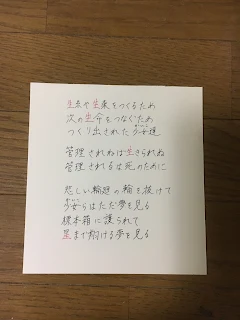 生きて生糸をつくるため
次の生命をつなぐため
つくり出された少女達
管理されねば生きられぬ
管理されるは死のために
悲しい輪廻の輪を抜けて
少女らはただ夢を見る
標本箱に護られて
星まで翔ける夢を見る